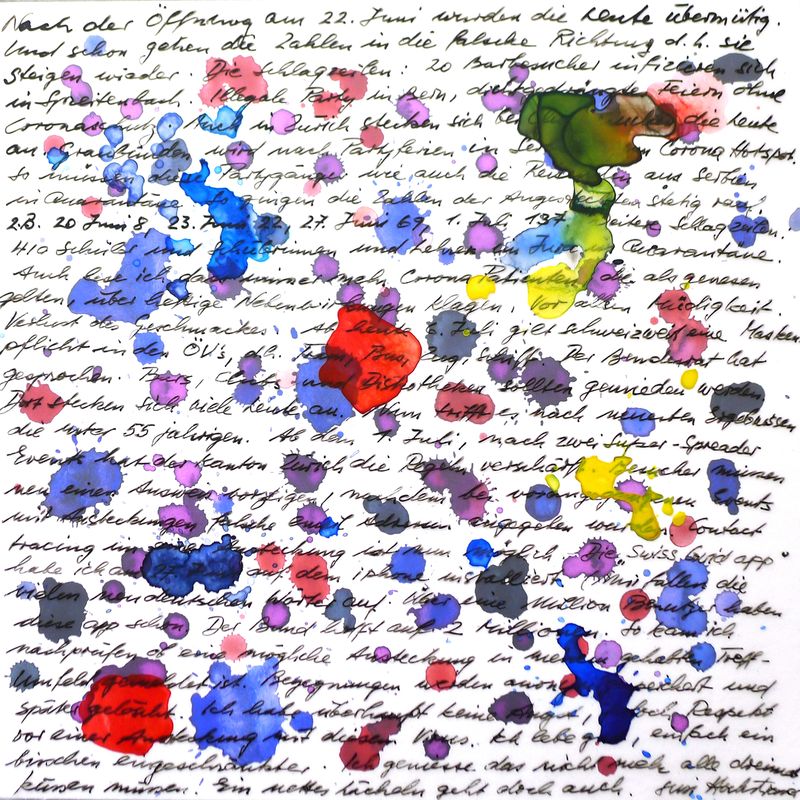 Nach der Öffnung am 22. Juni wurden die Leute übermütig.
Und schon gehen die Zahlen in die falsche Richtung d.h. sie
steigen wieder. Die Schlagzeilen: 20 Barbesucher infizieren sich
in Spreitenbach. Illegale Party in Bern, dichtgedrängte Feiern ohne
Coronaschutz. Auch in Zürich stecken sich bei die Leute
an. Graubünden wird nach Partyferien in Corona Hotspot.
So müssen die Partygänger wie auch die aus Serbien
in Quarantäne. So gingen die Zahlen der Angesteckten stetig
z.B. 20 Juni 8, 23. Juni 22, 27. Juni 69, 1. Juli 137 weitere Schlagzeilen.
410 Schüler und Schülerinnen und Lehrer im Jura in Quarantäne.
Auch lese ich dass immer mehr Corona Patienten, die als genesen
gelten, über heftige Nebenwirkungen klagen. Vor allem Müdigkeit,
Verlust des Geschmackes. Ab heute 6. Juli gilt schweizweit eine Masken
pflicht in den ÖV's, dh. Tram, Bus, Zug, Schiff. Der Bundesrat hat
gesprochen. Bars, Clubs und Diskotheken sollten gemieden werden.
Dort stecken sich viele Leute an. Nun trifft es, nach neuesten Ergebnissen
die unter 55 jährigen. Ab dem 7. Juli, nach zwei Super-Spreader
Events hat der Kanton Zürich die Regeln verschärft. Besucher müssen
neu einen Ausweis vorzeigen, nachdem bei vorangegangenen Events
mit Ansteckungen falsche Adressen angegeben wurden. Contact
tracing der Ansteckung ist nun möglich. Die "Swiss Covid app"
habe ich am auf dem iphone installiert. (Mir fallen die
vielen neudeutschen Wörter auf. Über eine Million Benutzer haben
diese app schon. Der Bund hofft auf 2 Millionen. So kann ich
nachprüfen ob eine mögliche Ansteckung in meinem Treff-
Umfeld gemeldet ist. Begegnungen werden anonym gespeichert und
später gelöscht. Ich habe überhaupt keine Angst, doch Respekt
vor einer Ansteckung mit diesem Virus. Ich lebe gut, einfach ein
bisschen eingeschränkter. Ich geniesse das nicht mehr alle dreimal
küssen müssen. Ein nettes lächeln geht doch auch.